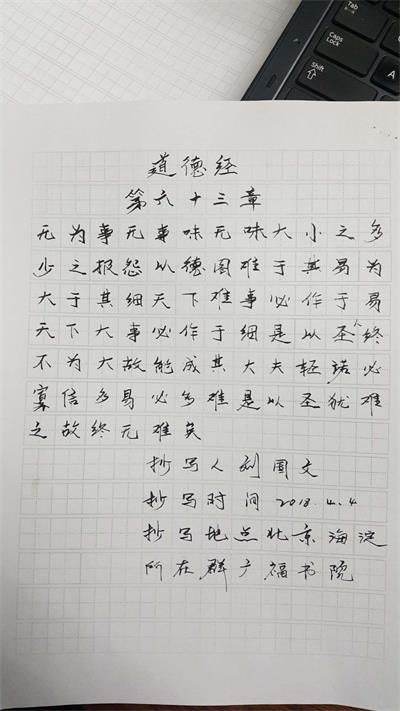 Tab
Caps
Lock
A
Shift
道德经
第六十三章
无为事无事味无味大小之多
少之报怨以德图难于其易为
大于其细天下难事必作于易
天下大事必作于细是以圣人终
不为大故能成其大夫轻诺必
寡信多易必多难是以圣犹难
之故终无难矣
抄写人刘国文
抄写时间2018.4.4
抄写地点北京海淀
所在群广福书院